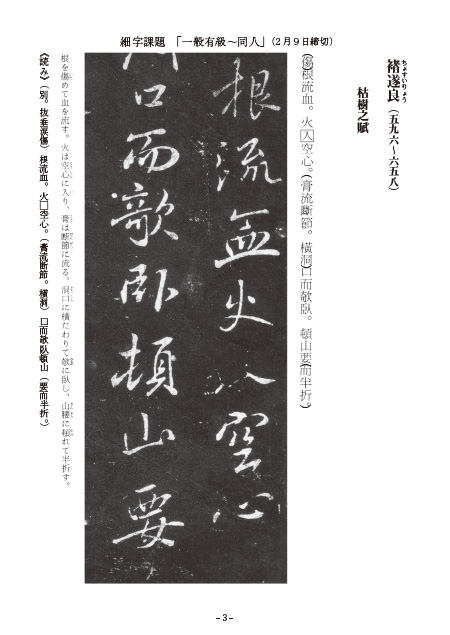 細字課題 「一般有級〜同人」(2月9日締切)
ちょすいりょう
褚遂良（五九六〜六五八）
枯樹之賦
(傷)根流血。火入空心。(膏流斷節。橫洞)口而欹臥。頓山要(而半折。)
根流血火入空心
口而欹臥頓山要
根を傷めて血を流す。火は空心に入り、膏は断節に流る。洞口に橫たわりて欹に臥し、山腰に頓れて半折す。
《読み》（別。抜垂涙傷） 根流血。火□空心。（膏流断節。橫洞） 口而欹臥頓山（要而半折。）
- 3 -